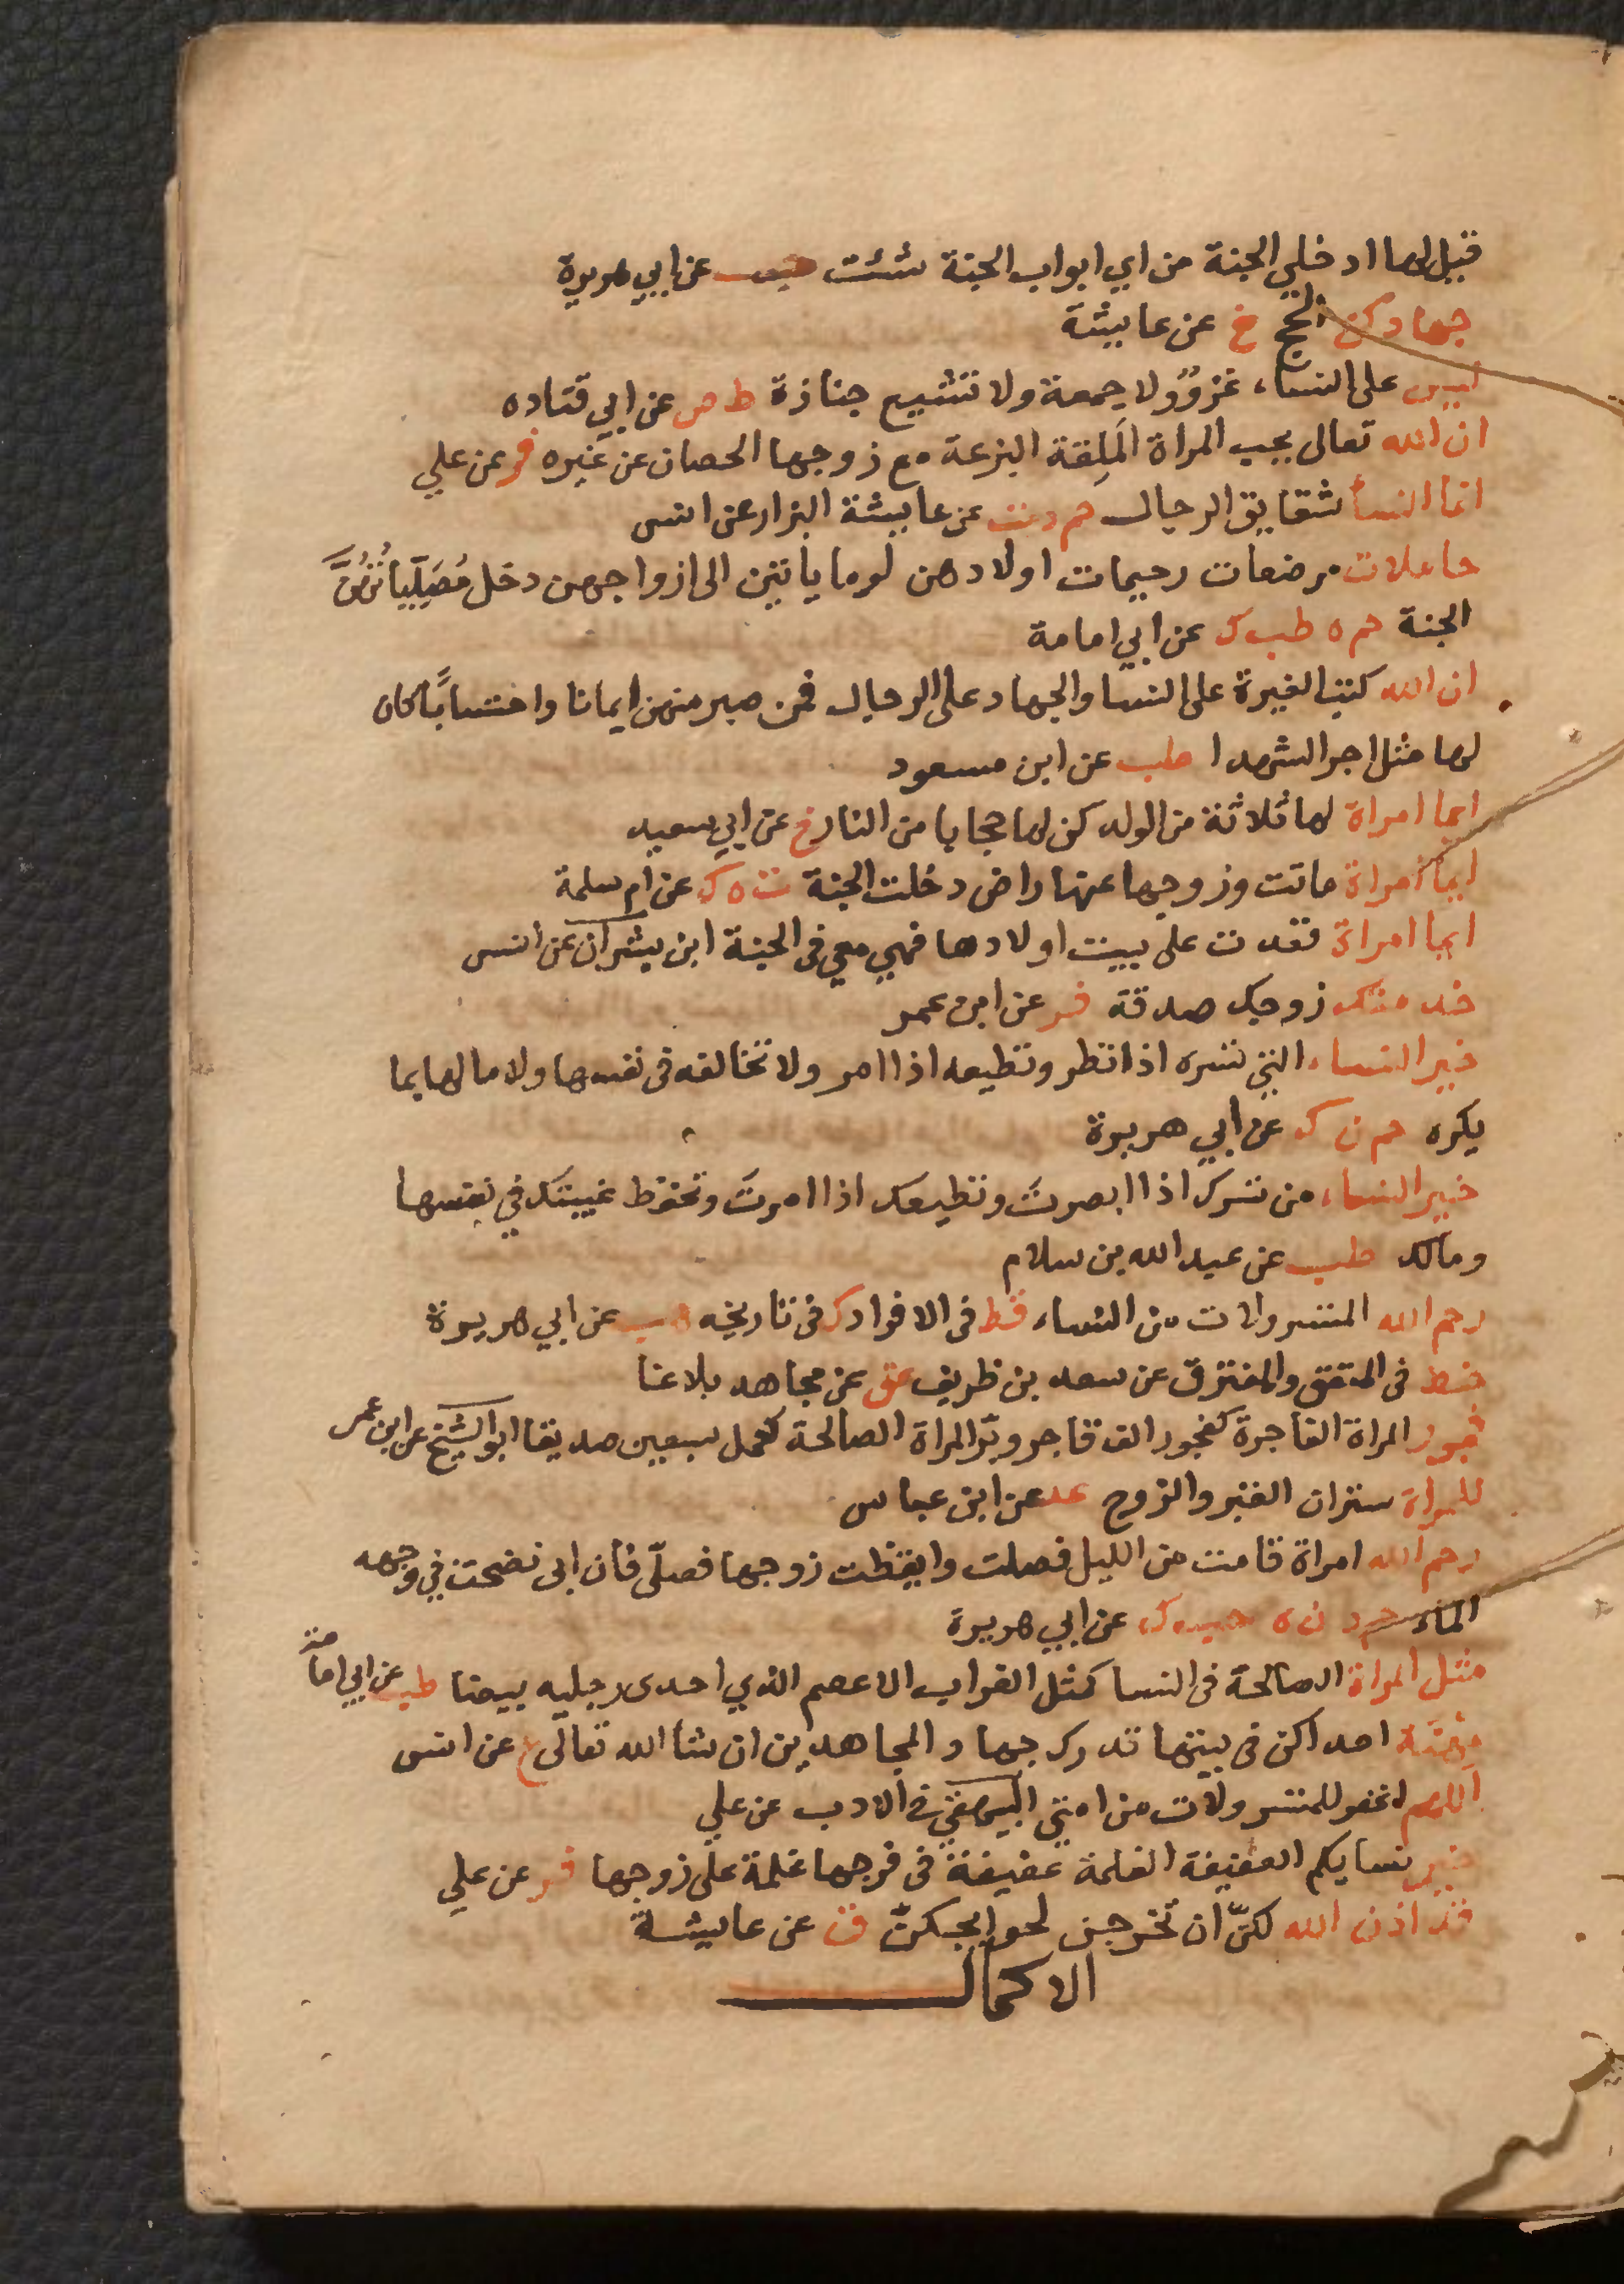 قيل لها ادخلي الجنة من اي ابواب الجنة شئت حب عن ابي هريرة
جهادكن الحج خ عن عايشة
ليس على النساء غزوٌ ولا جمعة ولا تشييع جنازة ط ص عن ابي قتاده
ان الله تعالى يحب المراة المَلِقة البزعة مع زوجها الحصان عن غيره فر عن علي
انما النسأ شقايق الرجال حم د ت عن عايشة البزار عن انس
حاملات مرضعات رحيمات اولادهن لوما ياتين الى ازواجهن دخل مُصَلِّياتُهُنَّ
الجنة حم ه طب ك عن ابي امامة
ان الله كتب الغيرة على النسا والجهاد على الرجال فمن صبر منهن ايمانا واحتساباً كان
لها مثل اجر الشهدا طب عن ابن مسعود
ايما امراة لها ثلاثة من الولد كن لها حجابا من النار خ عن ابي سعيد
ايما امراة ماتت وزوجها عنها راض دخلت الجنة ت ه ك عن ام سلمة
ايما امراة قعدت على بيت اولادها فهي معي فى الجنة ابن بشران عن انس
خدمتك زوجك صدقة فر عن ابن عمر
خير النساء التي تسره اذا نظر وتطيعه اذا امر ولا تخالفه فى نفسها ولا مالها بما
يكره حم ن ك عن ابي هريرة
خير النساء من تسرك اذا ابصرتَ وتطيعك اذا امرتَ وتحفظ غيبتك في نفسها
ومالك طب عن عبد الله بن سلام
رحم الله المتسرولات من النساء قط فى الافراد ك فى تاريخه هب عن ابي هريرة
خط فى المتفق والمفترق عن سعد بن ظريف عق عن مجاهد بلاغا
فجور المراة الفاجرة كفجور الف فاجر وبّر المراة الصالحة كعمل سبعين صديقا ابو الشيخ عن ابن عمر
للمراة ستران القبر والزوج عد عن ابن عباس
رحم الله امراة قامت من الليل فصلت وايقظت زوجها فصلّى فان ابى نضحت في وجهه
الماء حم د ن ه حب ك عن ابي هريرة
مثل المراة الصالحة فى النسا كمثل الغراب الاعصم الذي احدى رجليه بيضا طب عن ابي امامة
مِهنَة احداكن فى بيتها تدرك جهاد المجاهدين ان شأ الله تعالى ع عن انس
اللهم اغفر للمتسرولات من امتي البيهقي في الادب عن علي
خير نسايكم العفيفة الغلمة عفيفة فى فرجها غلمة على زوجها فر عن علي
قد اذن الله لكنّ ان تخرجن لحوايجكنّ ق عن عايشة
الاكمال